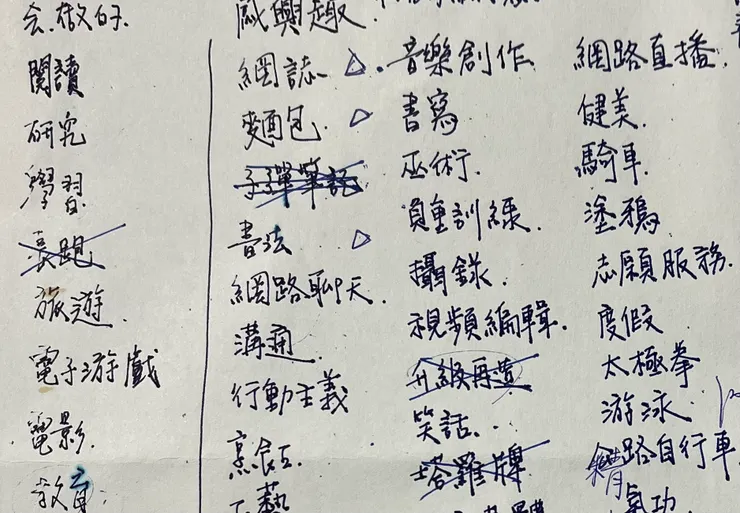 会.做的.
閱讀
研究
學習.
長跑
旅遊.
電子游戲
電影.
教育
感興趣.
網誌 △.
麵包. △
子彈筆記
書法. △
網路聊天.
溝通.
行動主義
烹飪.
音樂創作
書寫.
巫術.
負重訓練.
攝錄.
視頻編輯.
升級再造
笑話.
塔羅牌
網路直播.
健美.
騎車.
塗鴉.
志願服務.
度假
太極拳
游泳.
路自行車.
氣功.